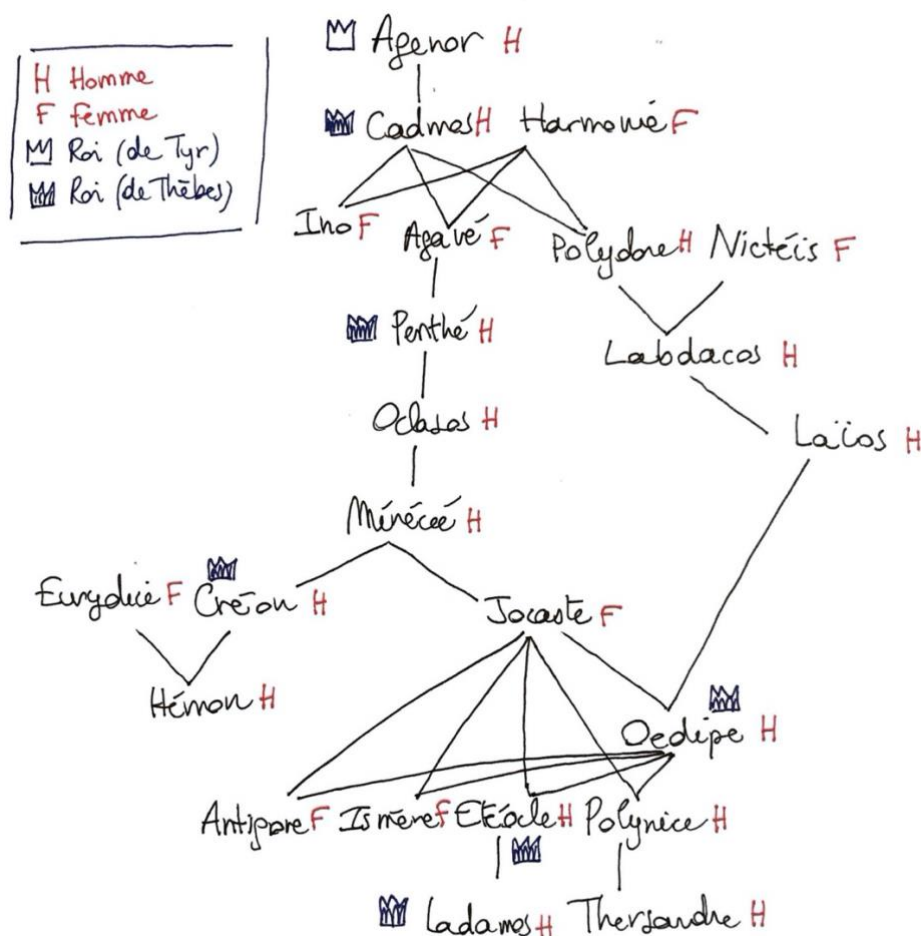 H Homme
F femme
Roi (de Tyr)
Roi (de Thèbes)
Agenor H
Cadmos H Harmonié F
Ino F Agavé F Polydore H Nictéis F
Penthé H Labdacos H
Oclasos H Laïos H
Ménécéé H
Eurydice F Créon H Jocaste F
Hémon H Oedipe H
Antigone F Ismène F Etéocle H Polynice H
Ladamos H Thersandre H